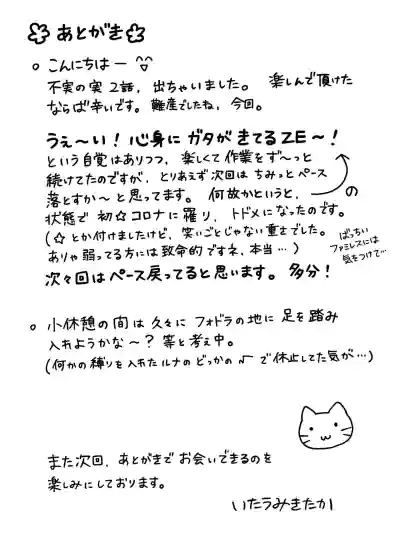 あとがき
○ こんにちはー
不実の実 2話、出ちゃいました。 楽しんで頂けた
ならば幸いです。難産でしたね、今回。
うぇ〜い!心身にガタがきてるZE〜!
という自覚はありつつ、楽しくて作業をず〜っと
続けてたのですが、とりあえず次回は ちみっとペース
落とすか〜と思ってます。 何故かというと、 の
状態で 初☆コロナに罹り、トドメになったのです。
(☆とか付けましたけど、笑いごとじゃない重さでした。
ありゃ弱ってる方には致命的ですネ、本当…)
ばっちい
ファミレスには
気をつけて…
次々回はペース戻ってると思います。多分!
○ 小休憩の間は 久々に フォドラの地に 足を踏み
入れようかな〜?等と考え中。
(何かの縛りを入れた ルナの どっかの√で休止してた気が…)
また次回、あとがきで お会いできるのを
楽しみにしております。
いたうみきたか